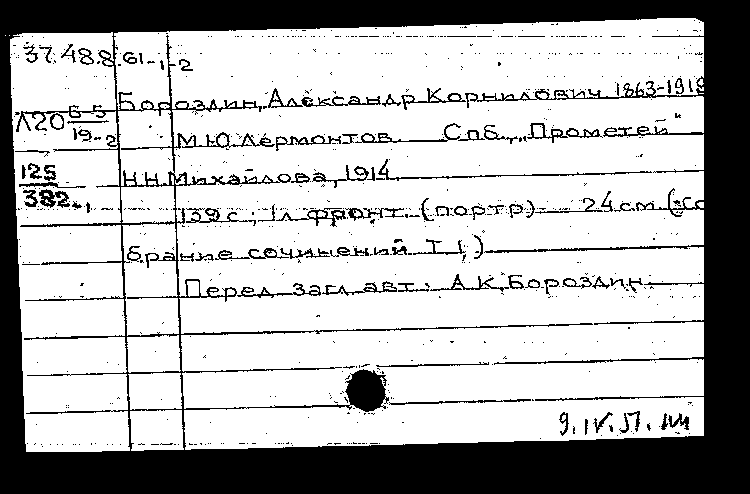 37.48.8.61-1-2
Бороздин, Александр Корнилович 1863-1918
Л20 Б-5
19-2
М.Ю. Лермонтов. Спб., „Прометей"
125
382-1
Н.Н. Михайлова, 1914.
139 с.; 1 л. фронт. (портр) — 24 см. (Со
брание сочинений Т I,)
Перед загл. авт: А.К. Бороздин.
9.IV.51.